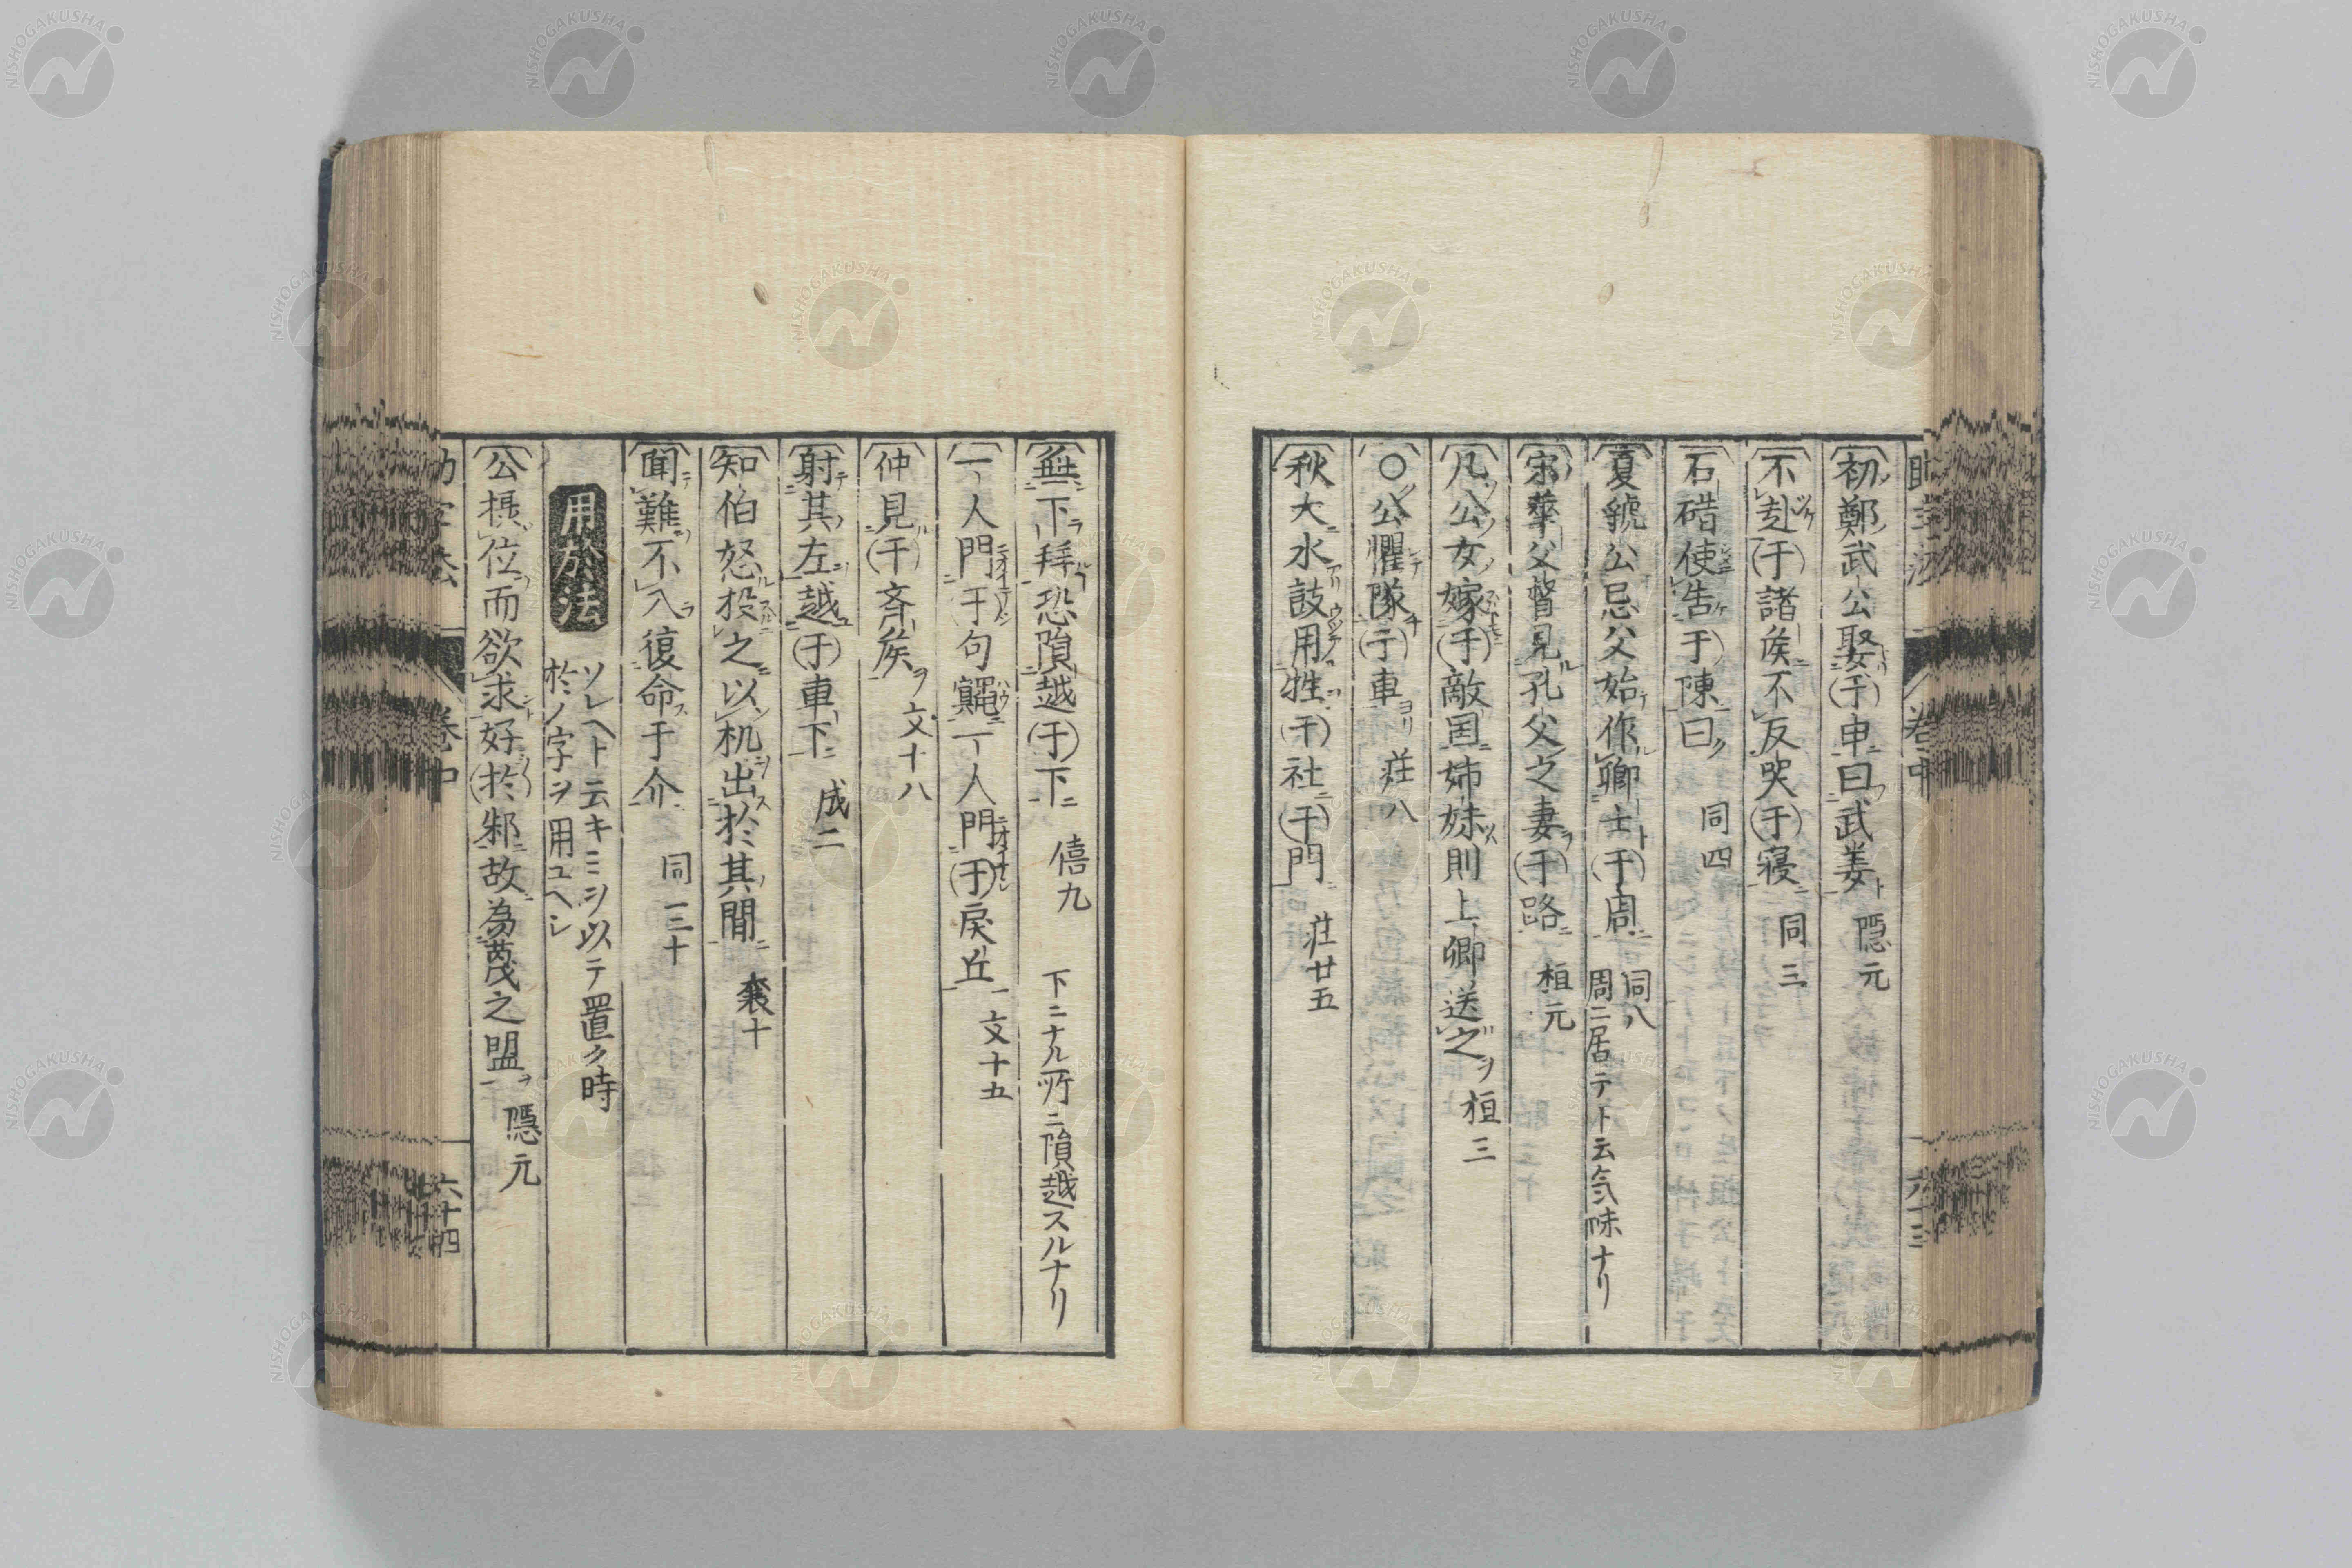 初鄭武公娶(于)申曰武姜 隠元
不赴(于)諸矦不反哭(于)寝 同三
石碏使告于陳曰 同四
夏虢公忌父始作卿士(于)周 同八 周ニ居テト云気味ナリ
宋華父督見孔父之妻(于)路 桓元
凡公女嫁(于)敵国姉妹則上卿送之 桓三
○公懼隊(于)車 荘八
秋大水鼓用牲(于)社(于)門 荘廿五
無下拜恐隕越(于)下 僖九 下ニナル所ニ隕越スルナリ
一人門于句鼆一人門(于)戾丘 文十五
仲見(于)斉矦 文十八
射其左越(于)車下 成二
知伯怒投之以机出於其間 襄十
聞難不入復命于介 同三十
用於法
ソレヘト云キミヲ以テ置ク時
於ノ字ヲ用ユヘシ
公摂位而欲求好(於)邾故為蔑之盟 隠元
巻中
六十四
NISHOGAKUSHA